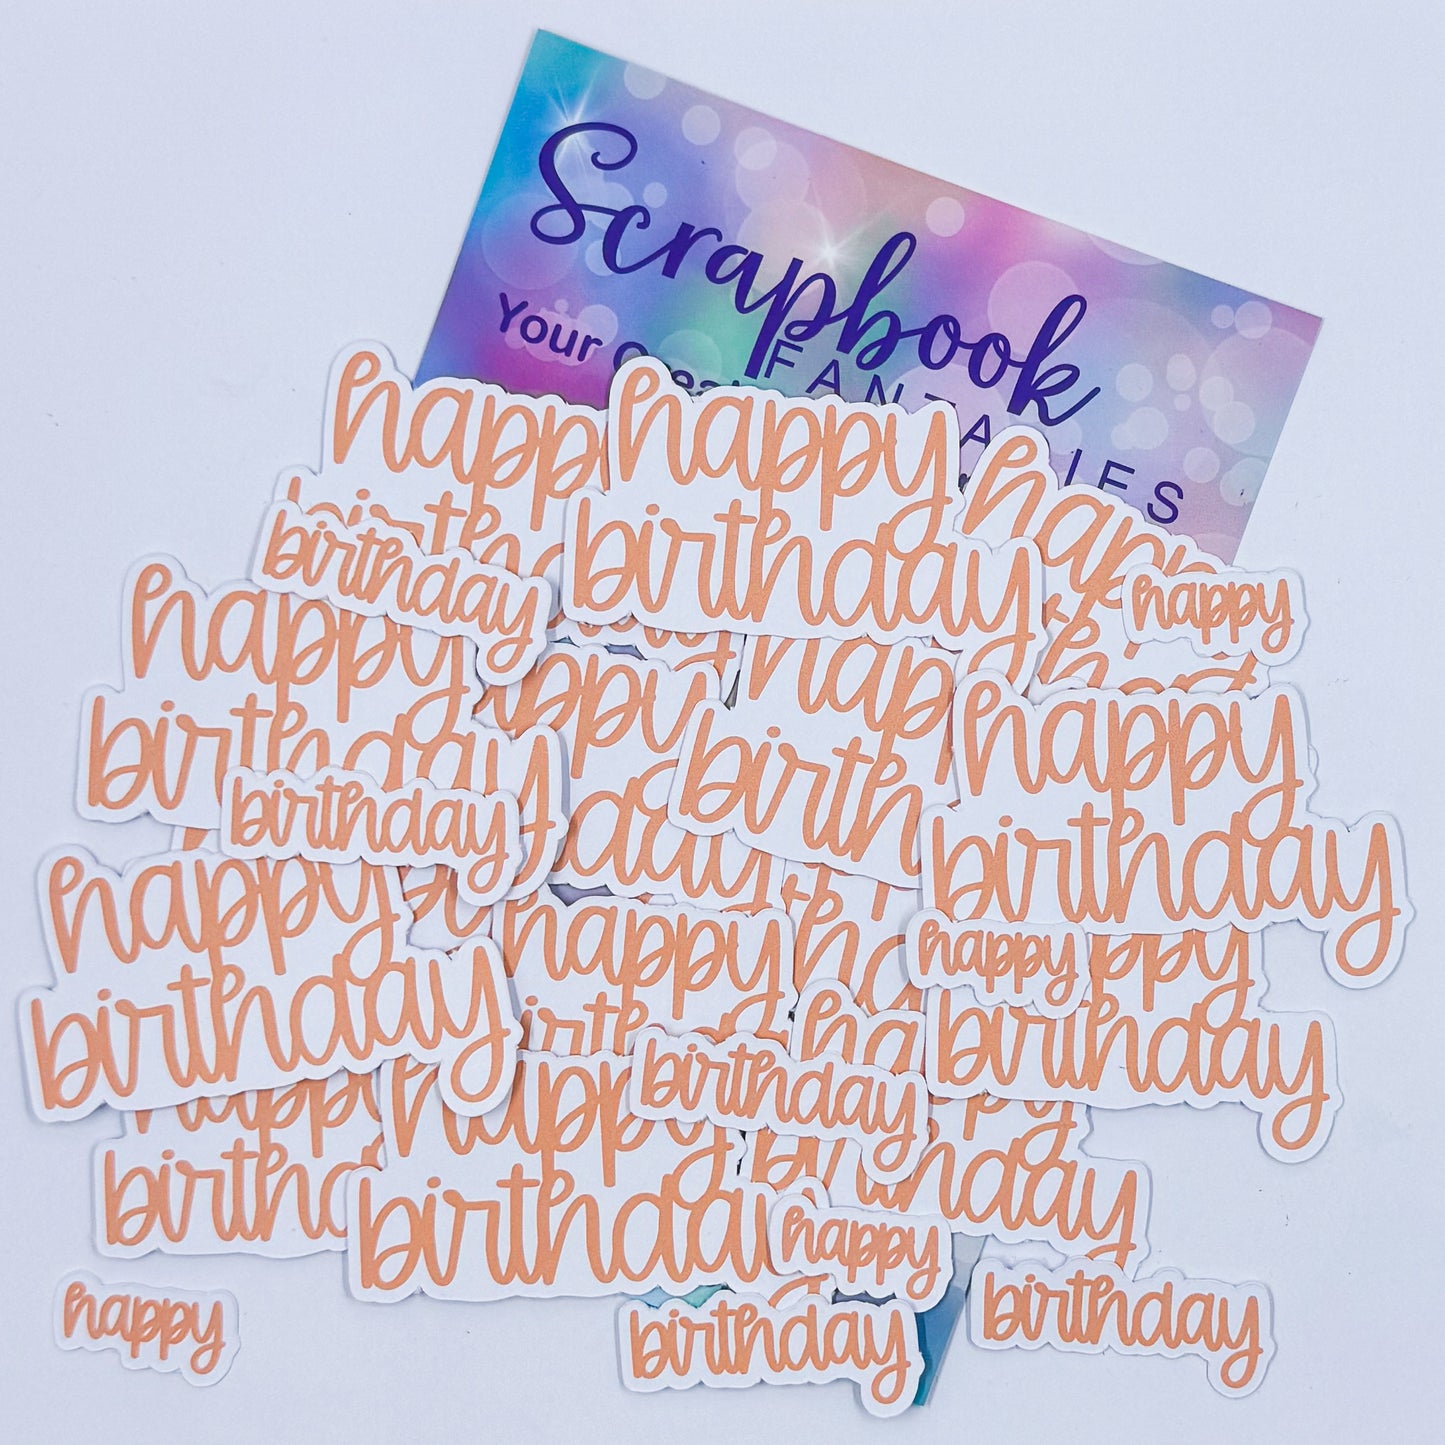 Scrapbook
FANTASIES
Your
happy
birthday
happy
birthday
birthday
happy
happy
birthday
happy
birthday
happy
birthday
birthday
happy
birthday
happy
birthday
happy
happy
birthday
birthday
happy
birthday
happy
birthday
happy
birthday
birthday